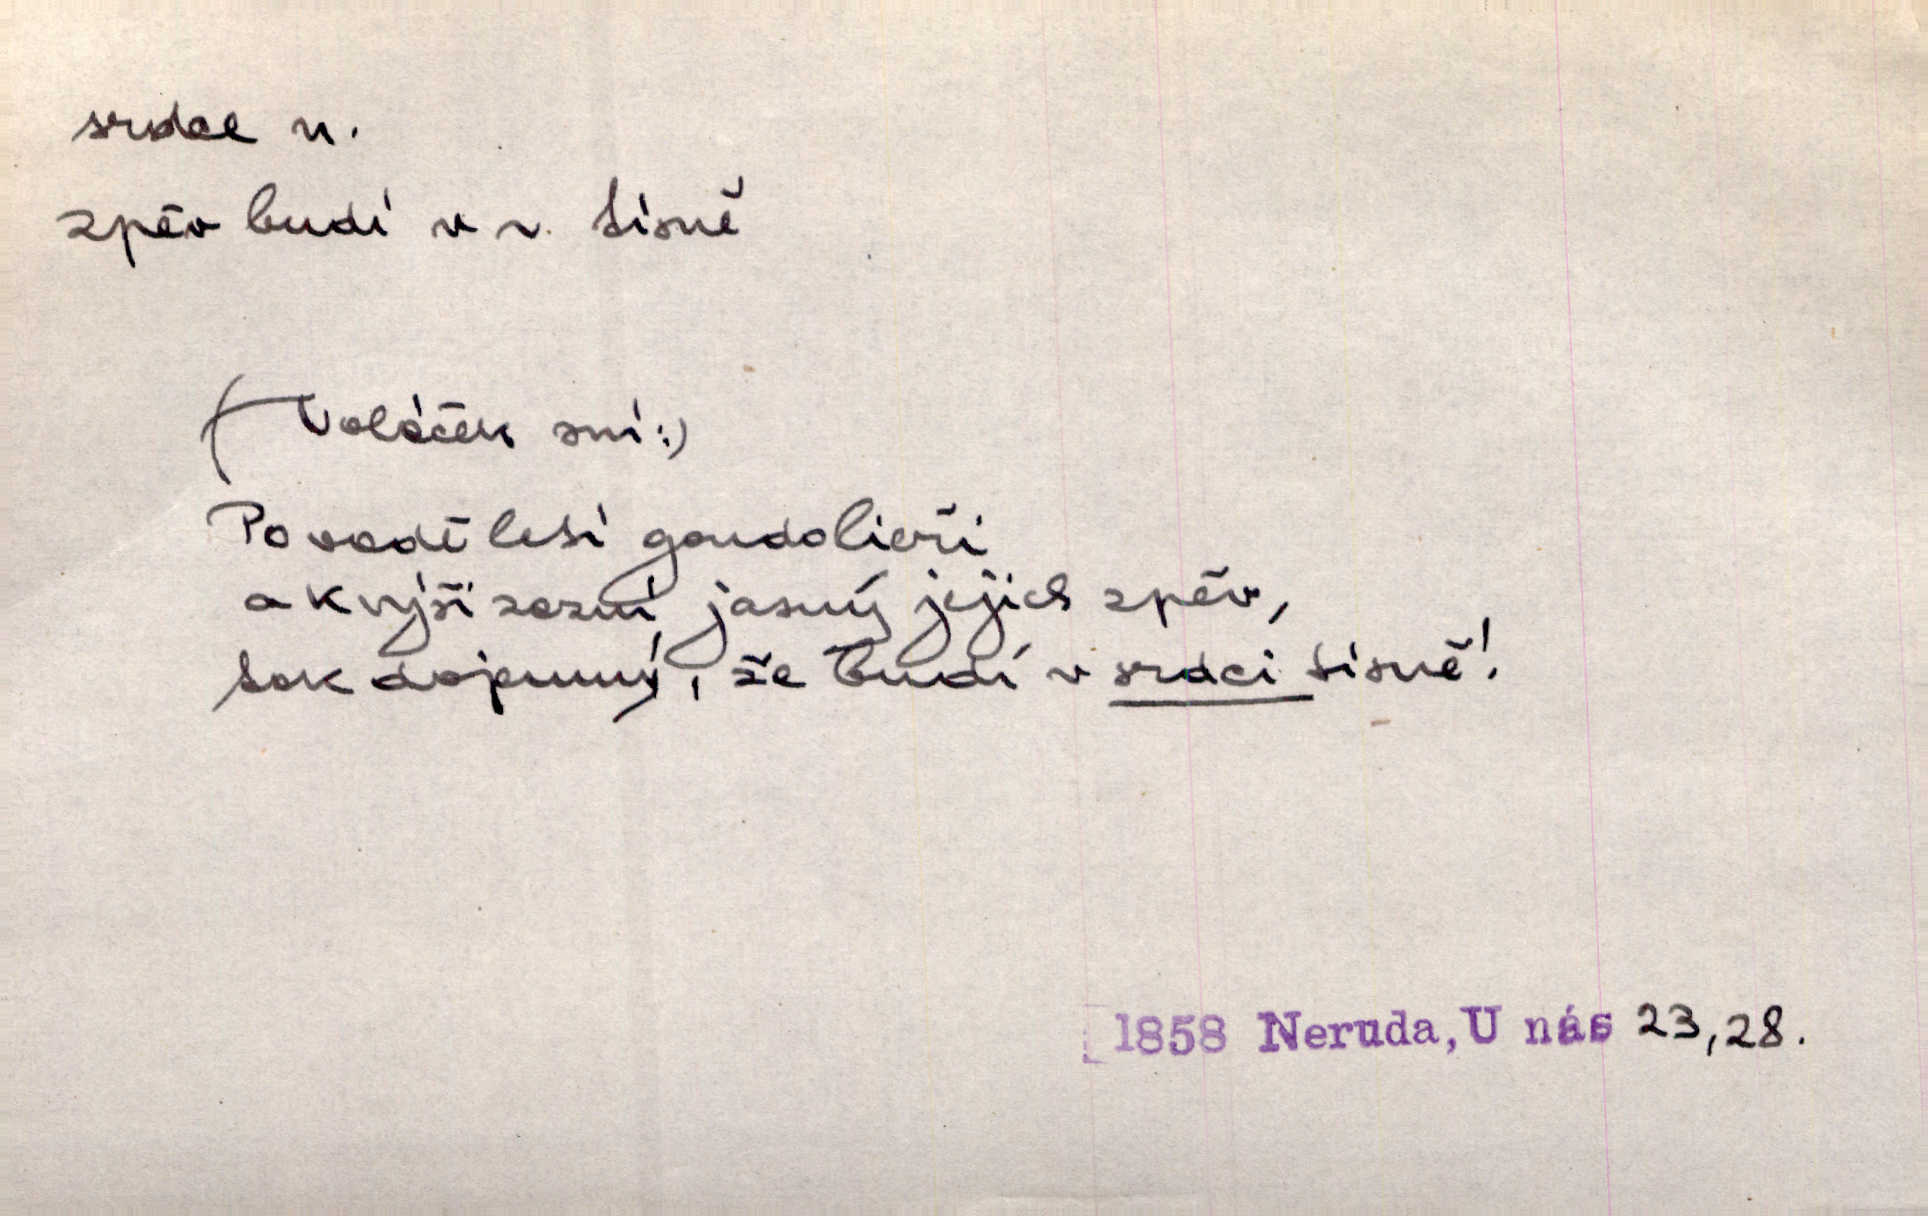 srdce n.
zpěv budí v s. tísně
(Voláček sní:)
Po vodě letí gondolieři
a k výši zazní jasný jejich zpěv,
tak dojemný, že budí v srdci tísně!
1858 Neruda, U nás 23,28.